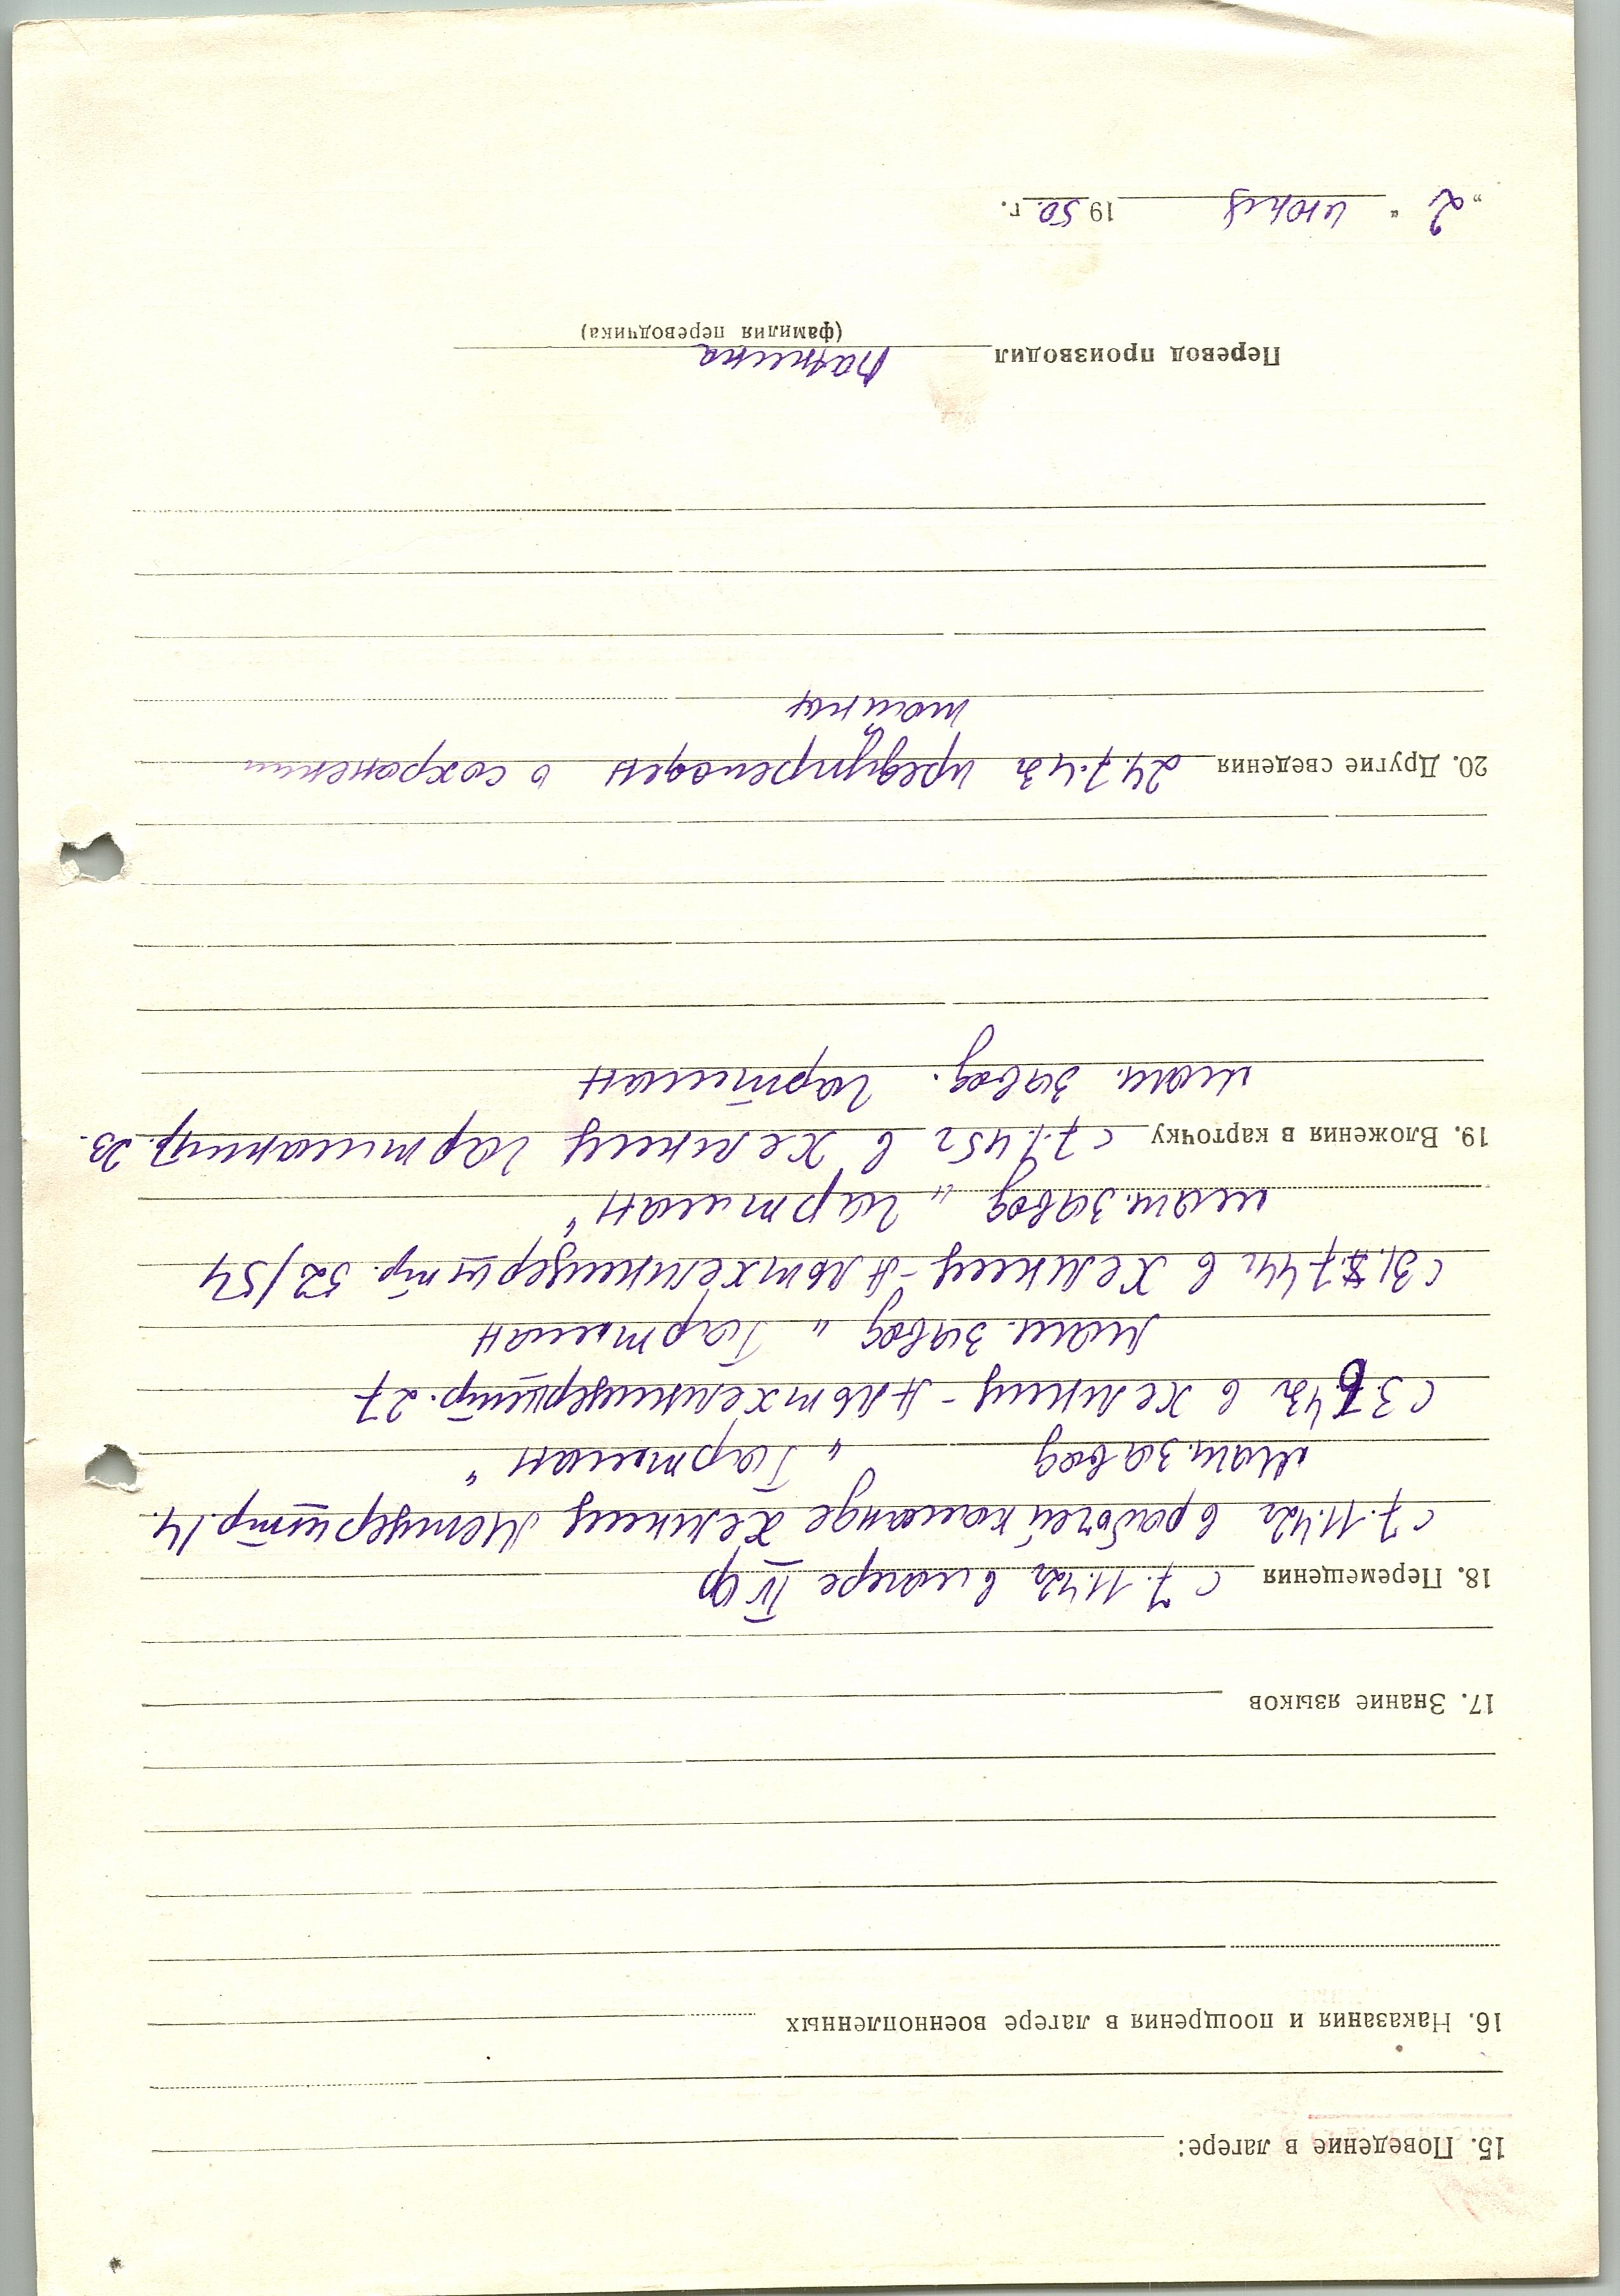 15. Поведение в лагере:
16. Наказания и поощрения в лагере военнопленных
17. Знание языков
18. Перемещения с 7.11.42г в лагере IV ф
с 7.11.42г в рабочей команде Хемниц Метцерштр. 14.
маш. завод „Гартман"
с 3 6 43г в Хемниц - Альтхемницерштр. 27
маш. завод „Гартман
с 31.7.44г в Хемниц - Альтхемницерштр. 52/54
маш. завод „Гартман"
19. Вложения в карточку с 7.1.45г в Хемниц Гартманштр. 23.
маш. завод. Гартман
20. Другие сведения 24.7.43г предупрежден о сохранении
тайны
Перевод производил
(фамилия переводчика)
„2" июня 1950 г.